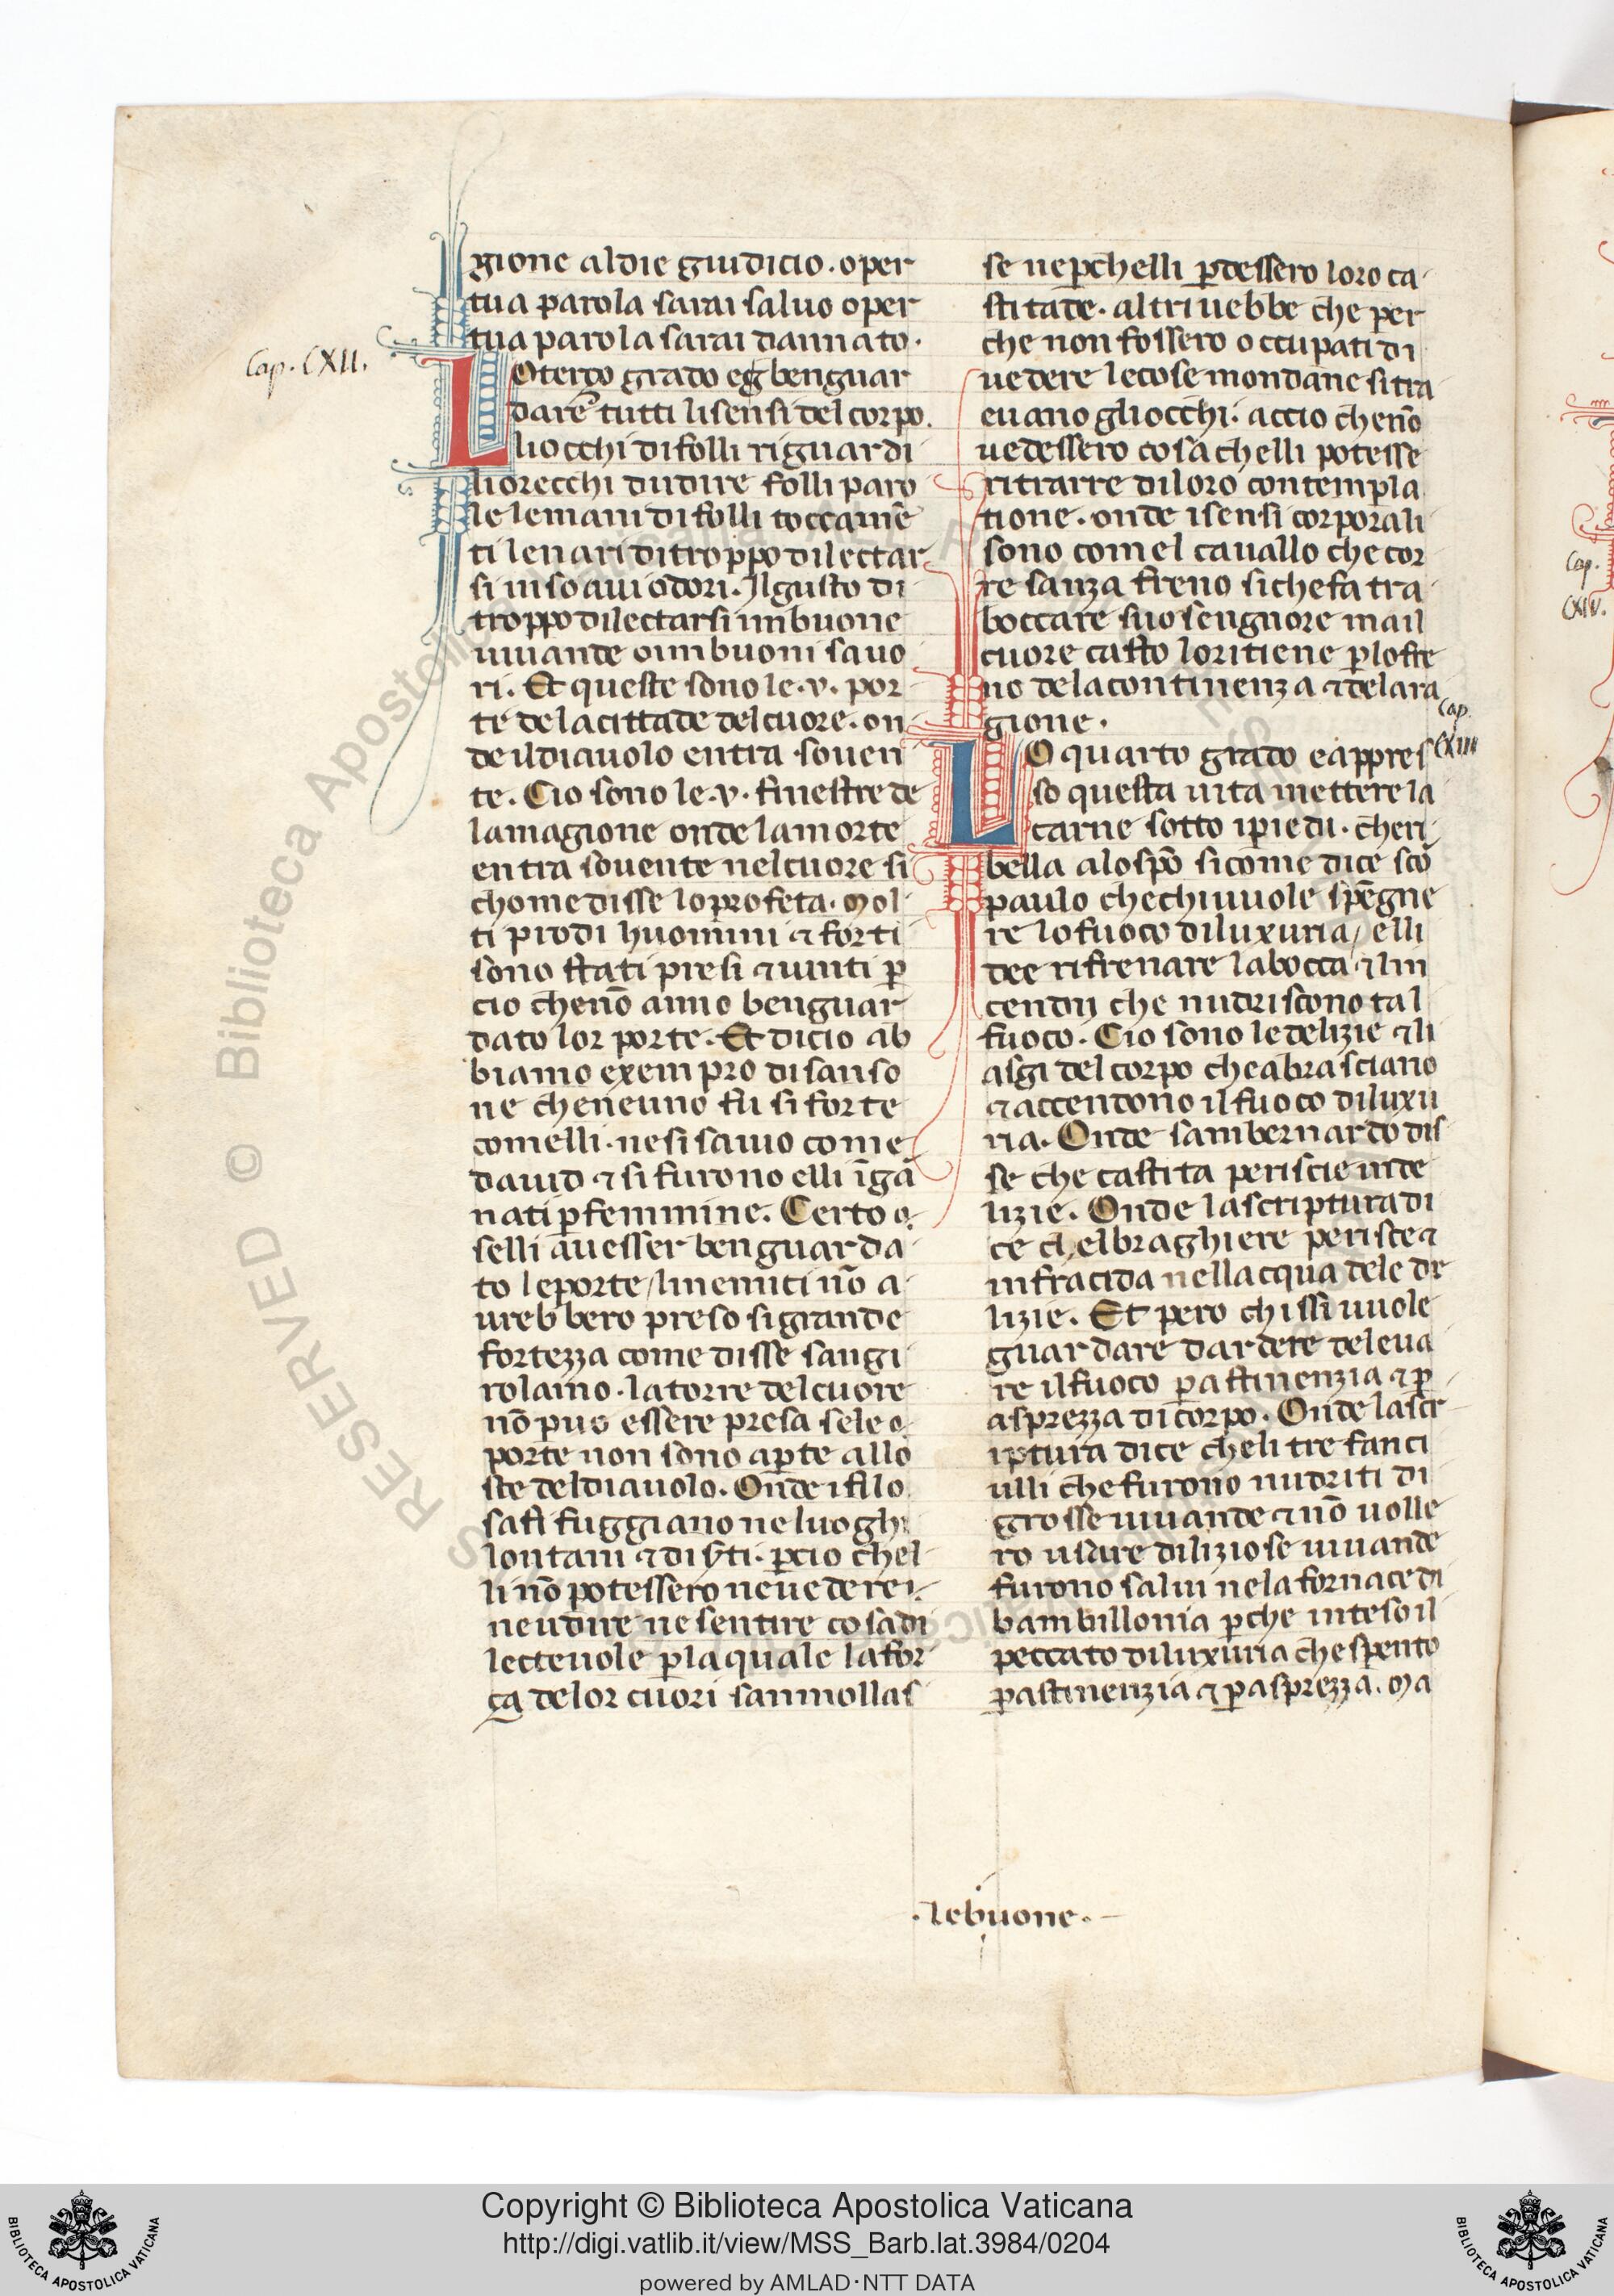 gione al die giudicio. o per
tua parola sarai saluo o per
tua parola sarai dannato.
Cap. CXII.
LO terço grado eg benguar
dare tutti li sensi del corpo.
li occhi di folli riguardi
li orecchi dudire folli paro
le le mani di folli toccam̄e
ti le nari di troppo dilectar
si in soaui odori. Il gusto di
troppo dilectarsi im buone
uiuande o im buoni sauo
ri. Et queste sono le .v. por
te de la cittade del cuore. on
de il diauolo entra souen
te. Cio sono le .v. finestre de
la magione onde la morte
entra souente nel cuore si
chome disse lo profeta. Mol
ti prodi huomini ⁊ forti
sono stati presi ⁊ uinti ꝑ
cio che nō anno benguar
dato lor porte. Et di cio ab
biamo exempro di sanso
ne che neuno fu si forte
comelli. ne si sauio come
dauid ⁊ si furono elli īgā
nati ꝑ femmine. Certo
selli auesser ben guarda
to le porte / li nemici nō a
urebbero preso si grande
fortezza come disse sangi
rolamo. la torre del cuore
nō puo essere presa se le
porte non sono aꝑte allo
ste del diauolo. Onde i filo
safi fuggiano ne luoghi
lontani ⁊ diſti. ꝑcio chel
li nō potessero ne uedere
ne udire ne sentire cosa di
lecteuole ꝑ la quale la for
ça de lor cuori sanmollas
se ne ꝑchelli ꝑdessero loro ca
stitade. altri uebbe che per
che non fossero occupati di
uedere le cose mondane si tra
euano gli occhi. accio che nō
uedessero cosa chelli potesse
ritrarre di loro contempla
tione. onde i sensi corporali
sono com el cauallo che cor
re sanza freno si che fa tra
boccare suo sengnore ma il
cuore casto lo ritiene ꝑ lo fre
no de la continenza ⁊ de la ra
gione.
Cap. CXIII
LO quarto grado e appres
so questa uita mettere la
carne sotto i piedi. che ri
bella a lo spō si come dice scō
paulo che chi uuole spegne
re lo fuoco di luxuria / elli
dee rifrenare la bocca ⁊ lin
cendij che nudriscono tal
fuoco. Cio sono le delizie ⁊ li
asgi del corpo che abrasciano
⁊ accendono il fuoco di luxu
ria. Onde sam bernardo dis
se che castita periscie in de
lizie. Onde la scriptura di
ce chel braghiere perisce ⁊
infracida nellacqua dele de
lizie. Et pero chi ssi uuole
guardare dardere de leua
re il fuoco ꝑ astinenzia ⁊ ꝑ
asprezza di corpo. Onde la scr
iptura dice che li tre fanci
ulli che furono nudriti di
grosse uiuande ⁊ nō uolle
ro usare diliziose uiuande
furono salui ne la fornace di
bambillonia ꝑche inteso il
peccato di luxuria che spento
ꝑ astinenzia ⁊ ꝑ asprezza. Ma
.le buone.
Cap.
CXIV.
© Biblioteca Apostolica Vaticana
RESERVED
Copyright © Biblioteca Apostolica Vaticana
http://digi.vatlib.it/view/MSS_Barb.lat.3984/0204
powered by AMLAD·NTT DATA
BIBLIOTECA APOSTOLICA VATICANA
BIBLIOTECA APOSTOLICA VATICANA